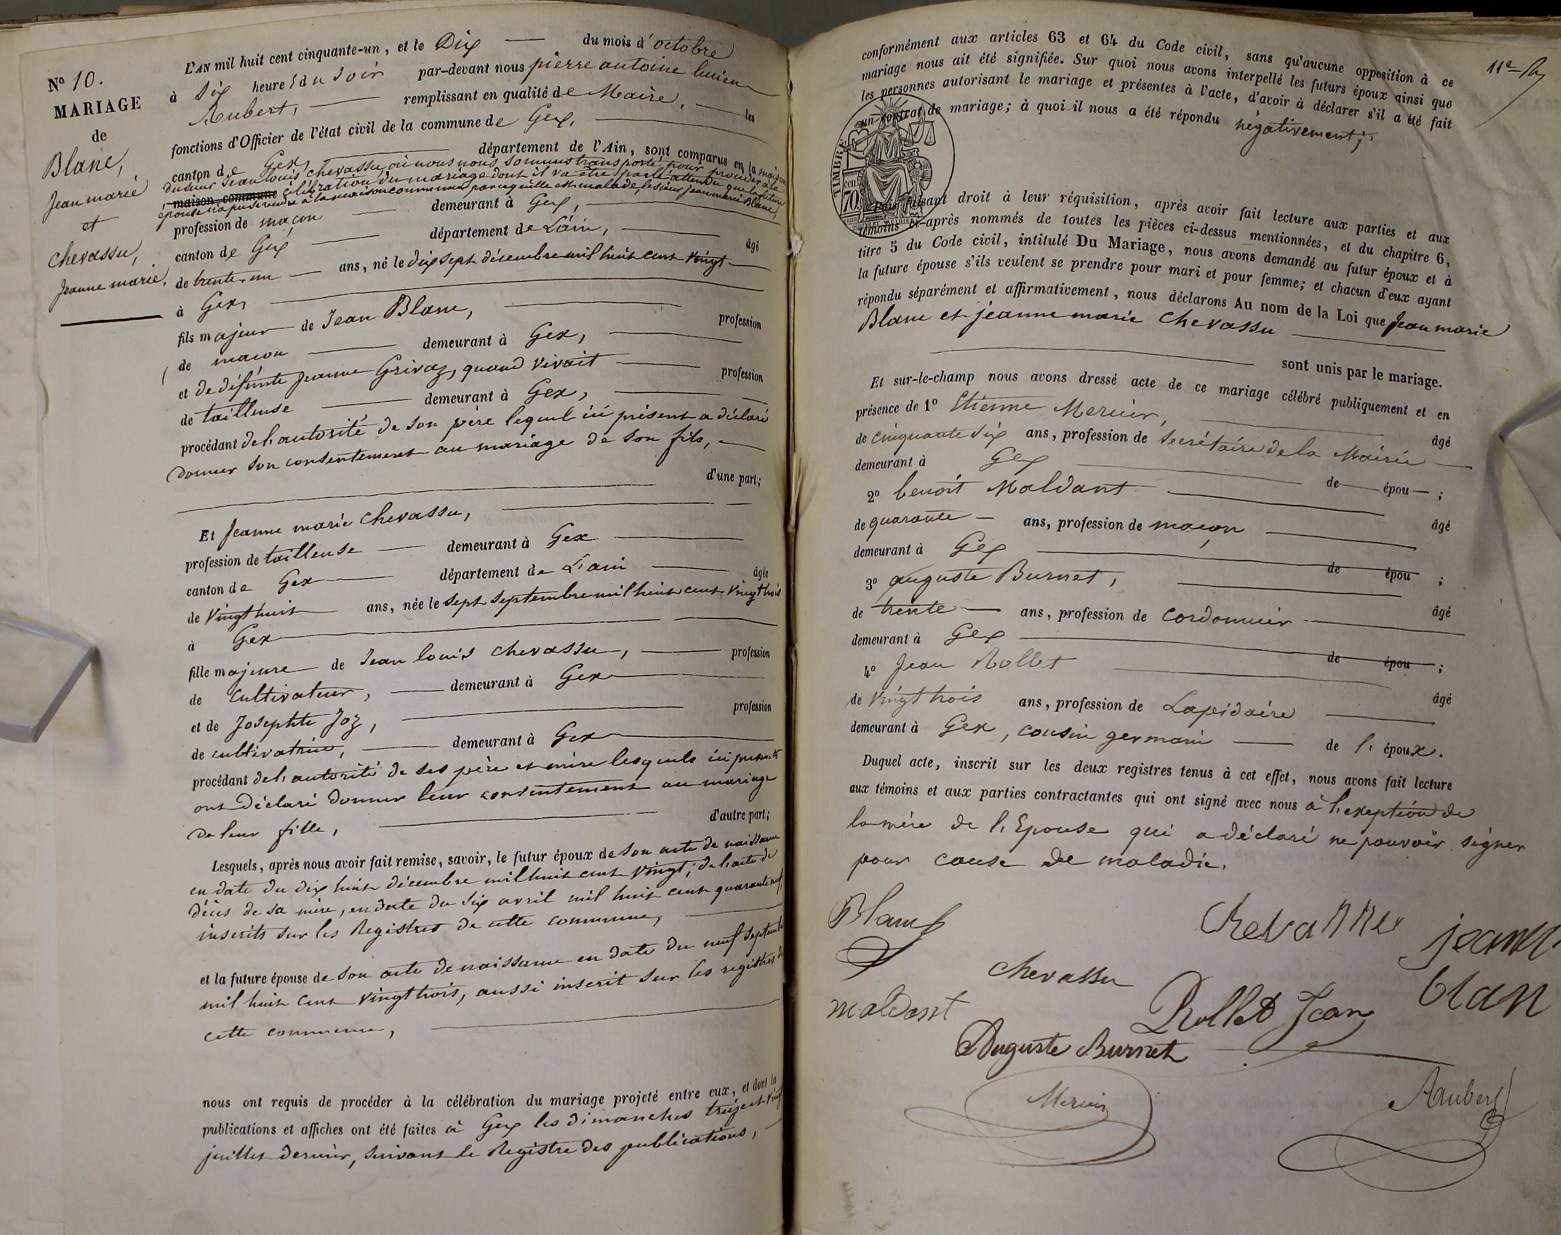 N° 10.
MARIAGE
de
Blanc,
Jean marie
et
Chevassu,
Jeanne marie.
L'AN mil huit cent cinquante-un, et le Dix du mois d'octobre
à Six heures du Soir par-devant nous pierre antoine lucien
Aubert, remplissant en qualité de Maire, les
fonctions d'Officier de l'état civil de la commune de Gex,
canton de Gex, département de l'Ain, sont comparus en la maison
du sieur Jean Louis Chevassu, où nous nous sommes transporté pour procéder à la
maison commune célébration du mariage dont il va être parlé attendu que la future
épouse n'a pu se rendre à la maison commune parce qu'elle est malade, le sieur jean marie Blanc,
profession de maçon demeurant à Gex,
canton de Gex département de L'ain, âgé
de trente-un ans, né le dix sept décembre mil huit cent vingt
à Gex,
fils majeur de Jean Blanc, profession
de maçon demeurant à Gex,
et de défunte Jeanne Grivaz, quand vivait profession
de tailleuse demeurant à Gex,
procédant de l'autorité de son père lequel ici présent a déclaré
donner son consentement au mariage de son fils,
d'une part;
Et Jeanne marie Chevassu,
profession de tailleuse demeurant à Gex
canton de Gex département de L'ain âgée
de vingt huit ans, née le sept septembre mil huit cent vingt trois
à Gex
fille majeure de Jean louis Chevassu, profession
de cultivateur, demeurant à Gex
et de Josephte Joz, profession
de cultivatrice, demeurant à Gex
procédant de l'autorité de ses père et mère lesquels ici présents
ont déclaré donner leur consentement au mariage
de leur fille, d'autre part;
Lesquels, après nous avoir fait remise, savoir, le futur époux de son acte de naissance
en date du dix huit décembre mil huit cent vingt; de l'acte de
décès de sa mère, en date du six avril mil huit cent quarante neuf
inscrits sur les Registres de cette commune,
et la future épouse de son acte de naissance en date du neuf septembre
mil huit cent vingt trois, aussi inscrit sur les registres de
cette commune,
nous ont requis de procéder à la célébration du mariage projeté entre eux, et dont les
publications et affiches ont été faites à Gex les dimanches treize et vingt
juillet dernier, suivant le Registre des publications,
11e
conformément aux articles 63 et 64 du Code civil, sans qu'aucune opposition à ce
mariage nous ait été signifiée. Sur quoi nous avons interpellé les futurs époux ainsi que
les personnes autorisant le mariage et présentes à l'acte, d'avoir à déclarer s'il a été fait
un contrat de mariage; à quoi il nous a été répondu négativement;
TIMBRE
70
faisant droit à leur réquisition, après avoir fait lecture aux parties et aux
témoins ci-après nommés de toutes les pièces ci-dessus mentionnées, et du chapitre 6,
titre 5 du Code civil, intitulé Du Mariage, nous avons demandé au futur époux et à
la future épouse s'ils veulent se prendre pour mari et pour femme; et chacun d'eux ayant
répondu séparément et affirmativement, nous déclarons Au nom de la Loi que Jean marie
Blanc et jéanne marie Chevassu
sont unis par le mariage.
Et sur-le-champ nous avons dressé acte de ce mariage célébré publiquement et en
présence de 1° Etienne Mercier, âgé
de cinquante six ans, profession de Secrétaire de la Mairie
demeurant à Gex de épou ;
2° benoit Maldant âgé
de quarante ans, profession de maçon
demeurant à Gex de épou ;
3° auguste Burnet, âgé
de trente ans, profession de cordonnier
demeurant à Gex de épou ;
4° Jean Rollet âgé
de vingt trois ans, profession de Lapidaire
demeurant à Gex, cousin germain de l'époux.
Duquel acte, inscrit sur les deux registres tenus à cet effet, nous avons fait lecture
aux témoins et aux parties contractantes qui ont signé avec nous à l'exception de
la mère de l'Epouse qui a déclaré ne pouvoir signer
pour cause de maladie.
Blanc
Chevassu
jean
blan
chevassu
maldant
Rollet Jean
Auguste Burnet
Mercier
Aubert